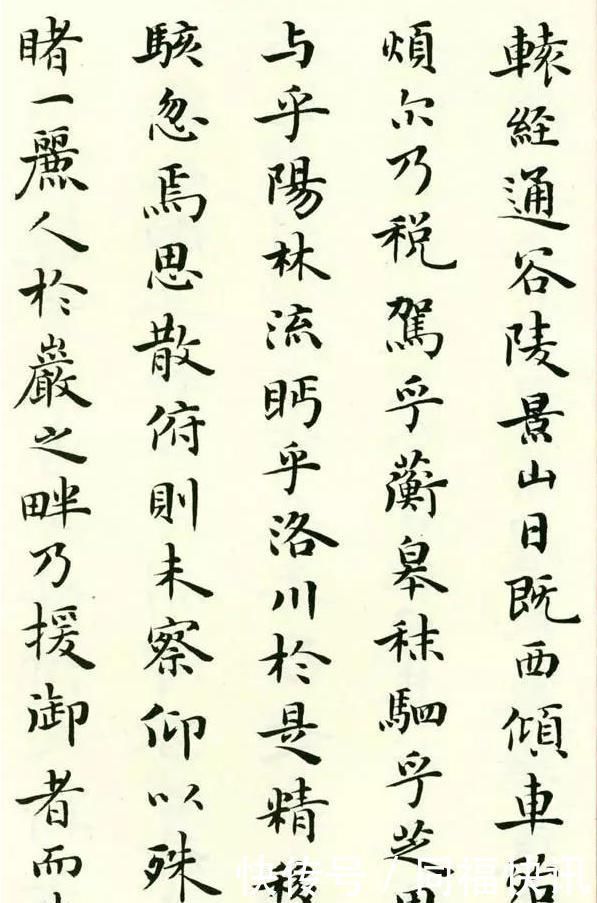 轅経通谷陵景山日既西傾車
煩尔乃税駕乎蘅皋秣駟乎芝
与乎陽林流眄乎洛川於是精移
駭忽焉思散俯則未察仰以殊
睹一麗人於巖之畔乃援御者而
快传号/同福快讯